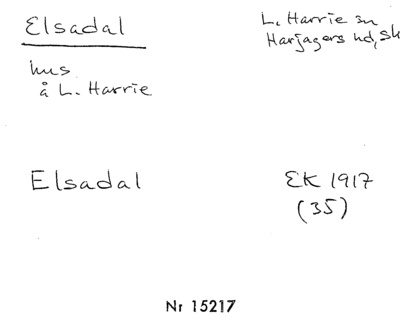 Elsadal
L. Harrie sn
Harjagers hd, Sk
hus
å L. Harrie
Elsadal
EK 1917
(35)
Nr 15217